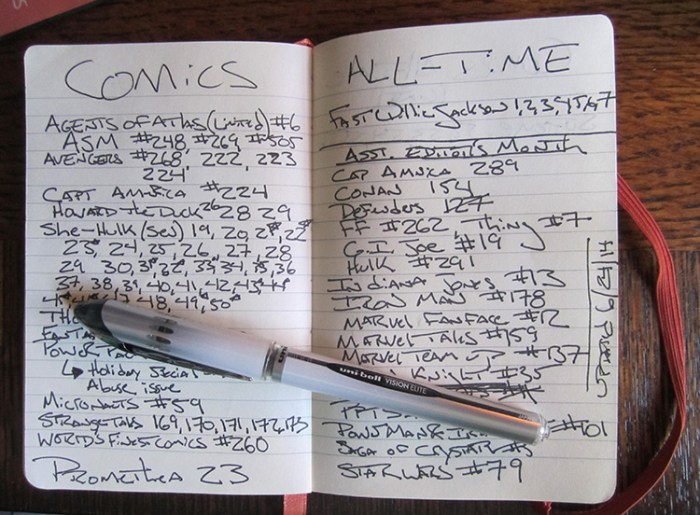 COMICS
AGENTS OF ATLAS (Limited) #6
ASM #248, #269, #505
AVENGERS #268, 222, 223
224
CAPT AMERICA #224
HOWARD the DUCK 26 28 29
She-Hulk (Sev) 19, 20, 21, 22
23, 24, 25, 26, 27, 28
29 30, 31, 32, 33, 34, 35, 36
37, 38, 39, 40, 41, 42, 43, 44
48, 49, 50
TH
FANTAS
POWER PAC
Holiday Special
Abuse issue
MICRONAUTS #59
STRANGE TALES 169, 170, 171, 172, 173
WORLD'S FINEST COMICS #260
PROMETHEA 23
ALL-TIME
FAST Willie Jackson 1, 2, 3, 4, 5, 6, 7
ASST. EDITOR'S MONTH
CAP AMERICA 289
CONAN 154
Defenders 127
FF #262, Thing #7
G.I. JOE #19
HULK #291
INDIANA JONES #13
IRON MAN #178
MARVEL FANFARE #12
MARVEL TALES #159
MARVEL TEAM UP #137
KNIGHT #35
PPTS
POWER MAN & IR #101
SAGA OF CRYSTAR #5
STAR WARS #79
UPDATED 9/24/11
uni-ball VISION ELITE